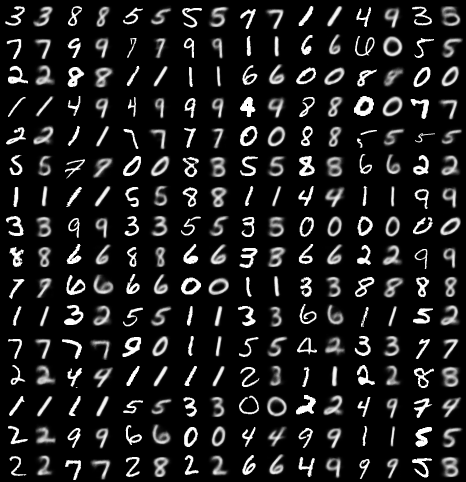 3 3 8 8 5 5 5 5 7 7 1 1 4 9 3 5
7 7 9 9 1 7 9 9 1 1 6 6 6 0 5 5
2 2 8 8 1 1 1 1 6 6 0 0 8 8 0 0
1 1 4 9 4 9 9 9 4 9 8 8 0 0 7 7
2 2 1 1 7 7 7 7 0 0 8 8 5 5 5 5
5 5 7 9 0 0 8 3 5 5 8 8 6 6 2 2
1 1 1 1 5 5 8 8 1 1 4 4 1 1 9 9
3 3 9 9 3 3 5 5 3 5 0 0 0 0 0 0
8 8 6 6 8 8 6 6 3 3 6 6 2 2 9 9
7 9 6 6 6 6 0 0 1 1 3 3 8 8 8 8
1 1 3 2 5 5 1 1 3 3 6 6 1 1 5 2
7 7 7 7 9 0 1 1 5 5 4 2 3 3 7 7
2 2 4 4 1 1 1 1 2 3 1 1 2 2 8 8
1 1 1 1 5 5 3 3 0 0 2 2 4 9 7 4
2 2 9 9 6 6 0 0 4 4 9 9 1 1 5 5
2 2 7 7 2 8 2 2 6 6 4 9 9 9 5 3